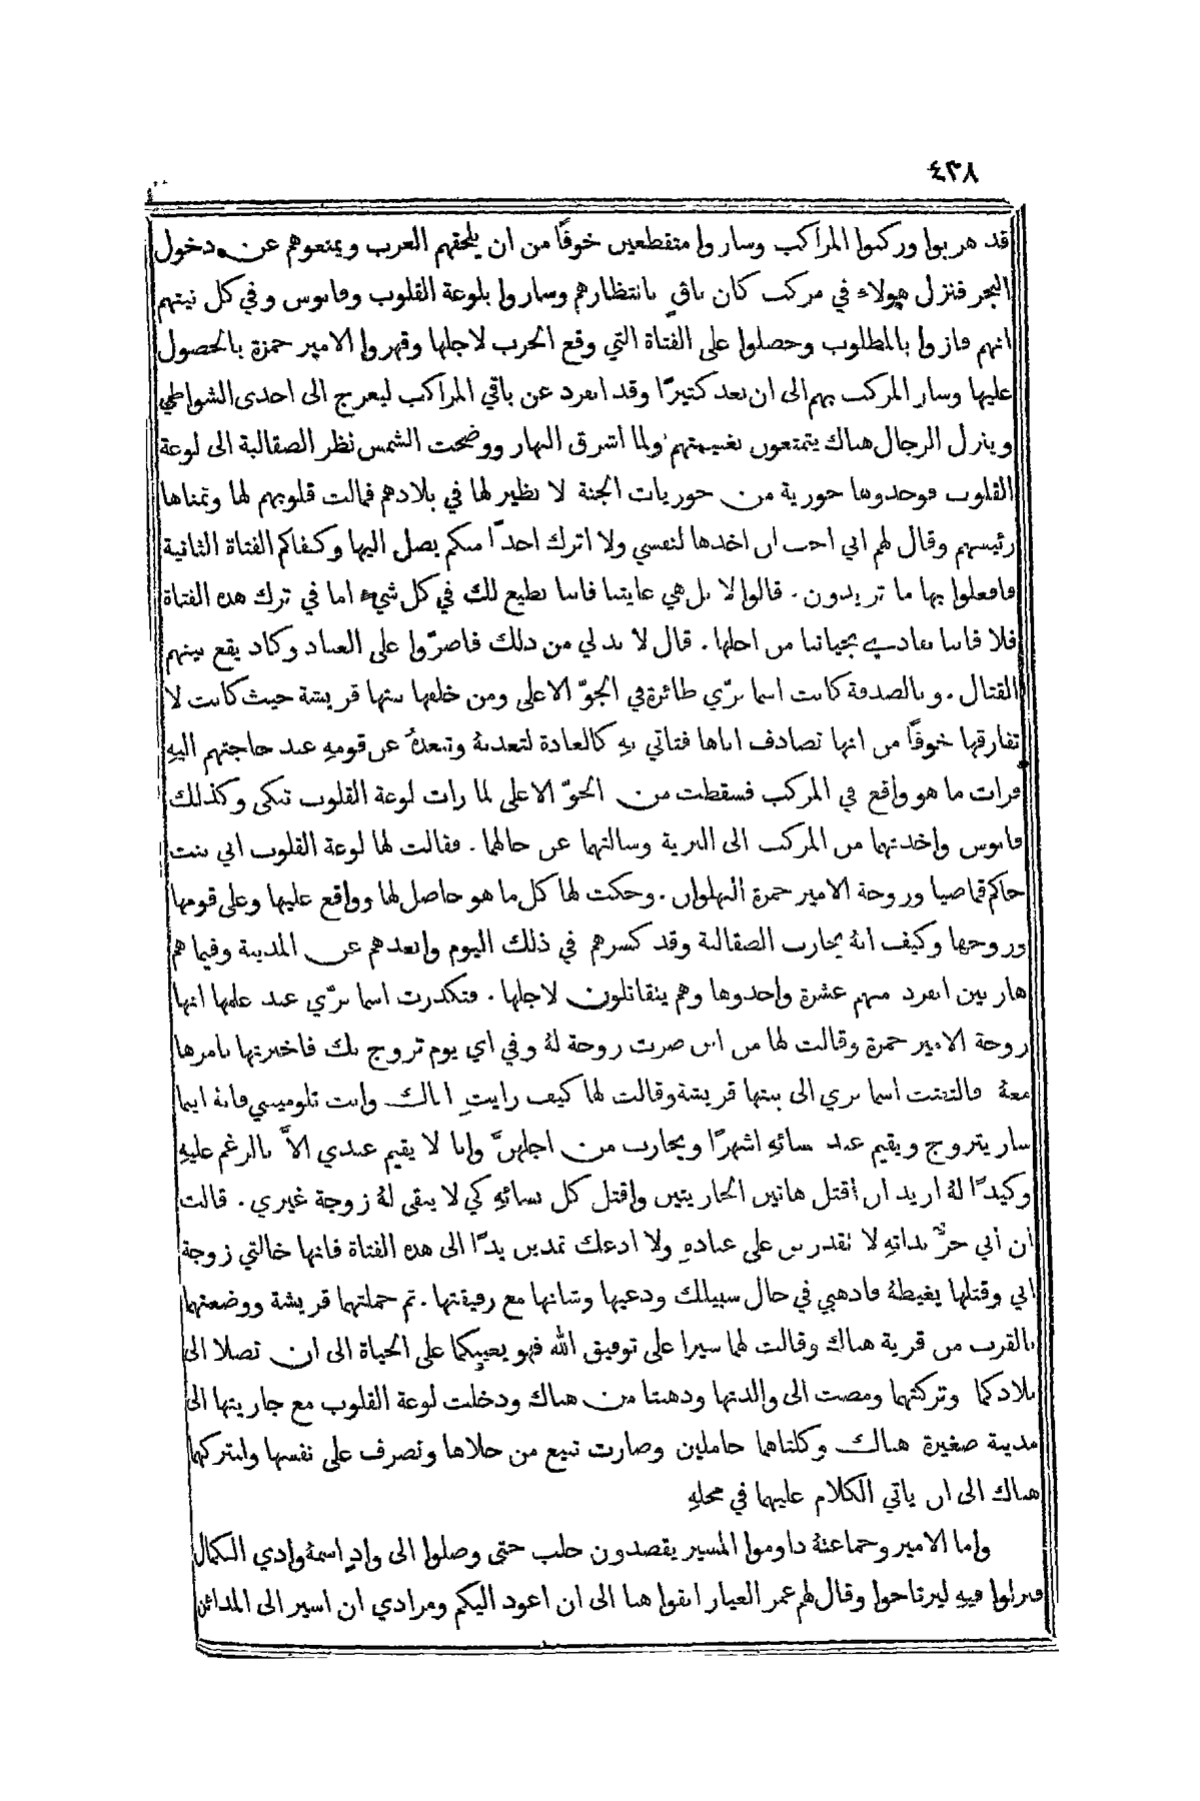 ٤٣٨
قد هربوا وركبوا المراكب وساروا متقطعين خوفًا من ان يلحقهم العرب ويمنعوهم عن دخول
البحر فنزل هولاء في مركب كان باقٍ بانتظارهم وساروا بلوعة القلوب وفانوس وفي كل نيتهم
انهم فازوا بالمطلوب وحصلوا على الفتاة التي وقع الحرب لاجلها وقهروا الامير حمزة بالحصول
عليها وسار المركب بهم الى ان بعد كتيرًا وقد انفرد عن باقي المراكب ليعرج الى احدى الشواطي
وينزل الرجال هناك يتمتعون بغنيمتهم ولما اشرق النهار ووضحت الشمس نظر الصقالبة الى لوعة
القلوب فوجدوها حورية من حوريات الجنة لا نظير لها في بلادهم فمالت قلوبهم لها وتمناها
رئيسهم وقال لهم اني احب ان اخدها لنفسي ولا اترك احدًا منكم يصل اليها وكفاكم الفتاة الثانية
فافعلوا بها ما تريدون . قالوا لا بل هي غايتنا فاننا نطيع لك في كل شيء اما في ترك هذه الفتاة
فلا فاننا نفادي بحياتنا من اجلها . قال لا بد لي من ذلك فاصرّوا على العناد وكاد يقع بينهم
القتال . وبالصدفة كانت اسما برّي طائرة في الجوّ الاعلى ومن خلفها بنتها قريشة حيث كانت لا
تفارقها خوفًا من انها تصادف اباها فتاتي بهِ كالعادة لتعذبهُ وتبعدهُ عن قومهِ عند حاجتهم اليهِ
فرات ما هو واقع في المركب فسقطت من الجوّ الاعلى لما رات لوعة القلوب تبكي وكذلك
فانوس واخدتهما من المركب الى البرية وسالتهما عن حالهما . فقالت لها لوعة القلوب اني بنت
حاكم قماصيا وزوجة الامير حمزة البهلوان . وحكت لها كل ما هو حاصل لها وواقع عليها وعلى قومها
وزوجها وكيف انهُ يحارب الصقالبة وقد كسرهم في ذلك اليوم وابعدهم عن المدينة وفيما هم
هاربين انفرد منهم عشرة واخدوها وهم يتقاتلون لاجلها . فتكدرت اسما برّي عند علمها انها
زوجة الامير حمزة وقالت لها من اين صرت زوجة لهُ وفي اي يوم تزوج بك فاخبرتها بامرها
معهُ فالتفتت اسما بري الى بنتها قريشة وقالت لها كيف رايتِ اباك وانت تلوميني فانهُ اينما
سار يتزوج ويقيم عند نسائهِ اشهرًا ويحارب من اجلهنَّ وانا لا يقيم عندي الاَّ بالرغم عليهِ
وكيدًا لهُ اريد ان اقتل هاتين الجاريتين واقتل كل نسائهِ كي لا يبقى لهُ زوجة غيري . قالت
ان أبي حرٌّ بذاتهِ لا تقدرين على عنادهِ ولا ادعك تمدين يدًا الى هذه الفتاة فانها خالتي زوجة
ابي وقتلها يغيظهُ فاذهبي في حال سبيلك ودعيها وشانها مع رفيقتها . ثم حملتهما قريشة ووضعتهما
بالقرب من قرية هناك وقالت لهما سيرا على توفيق الله فهو يعينكما على الحياة الى ان تصلا الى
بلادكما وتركتهما ومضت الى والدتها وذهبتا من هناك ودخلت لوعة القلوب مع جاريتها الى
مدينة صغيرة هناك وكلتاهما حاملين وصارت تبيع من حلاها وتصرف على نفسها ولنتركهما
هناك الى ان ياتي الكلام عليهما في محلهِ
واما الامير وجماعتهُ داوموا المسير يقصدون حلب حتى وصلوا الى وادٍ اسمهُ وادي الكمال
فنزلوا فيهِ ليرتاحوا وقال لهم عمر العيار ابقوا هنا الى ان اعود اليكم ومرادي ان اسير الى المدائن